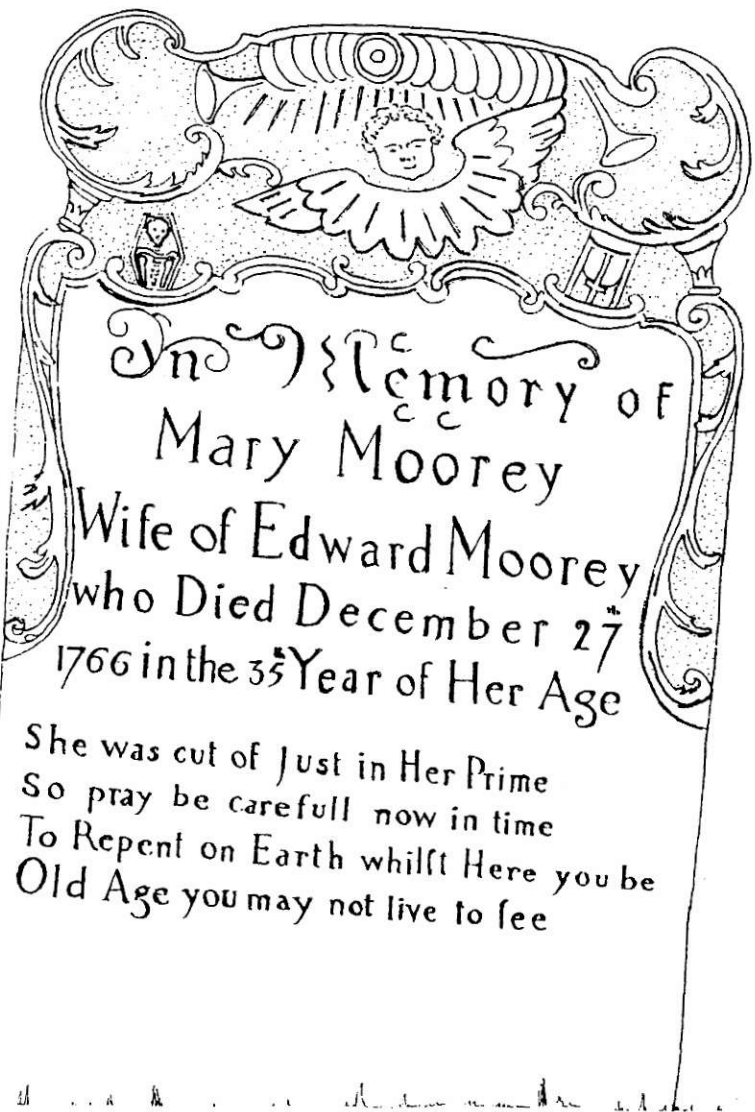 In Memory of
Mary Moorey
Wife of Edward Moorey
who Died December 27th
1766 in the 35th Year of Her Age
She was cut of Just in Her Prime
So pray be carefull now in time
To Repent on Earth whilſt Here you be
Old Age you may not live to ſee